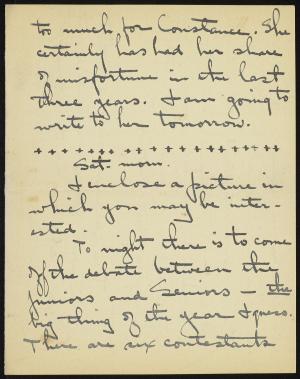 too much for Constance. She
certainly has had her share
of misfortune in the last
three years. I am going to
write to her tomorrow.
++++++++++++++++++++
Sat. morn.
I enclose a picture in
which you may be inter-
ested.
To night there is to come
off the debate between the
Juniors and Seniors — the
big thing of the year I guess.
There are six contestants